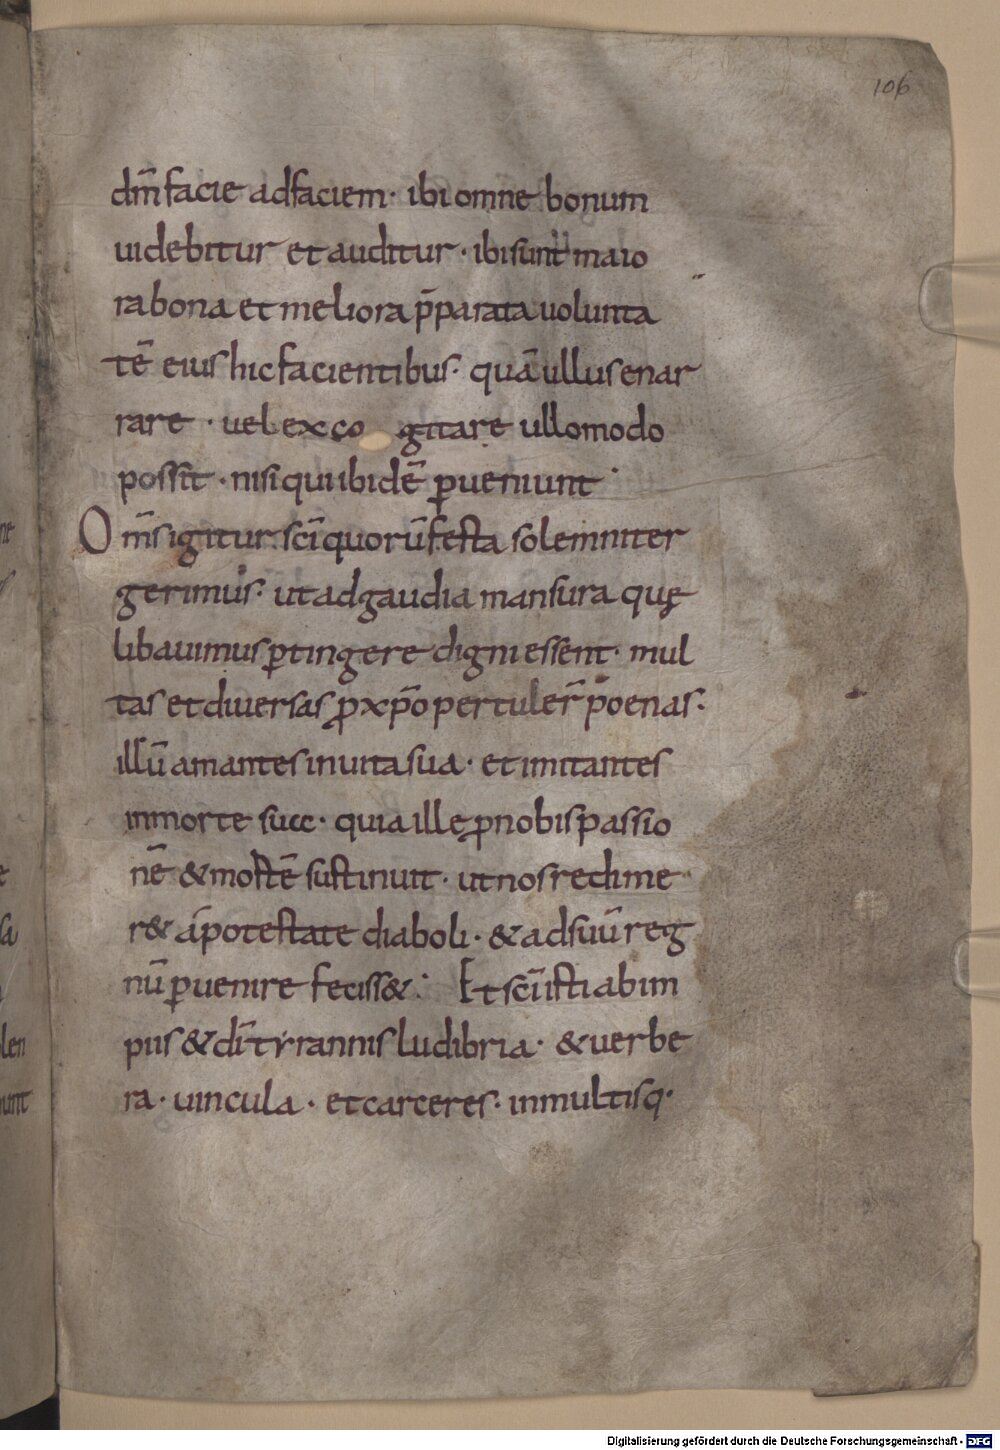 106
dm̄ facie adfaciem · ibi omne bonum
uidebitur et auditur · ibi sunt maio
ra bona et meliora p̄parata uolunta
tē eius hic facientibus · quā ullus enar
rare · uel exco gitare ullomodo
possit · nisi qui ibidē ꝑueniunt ·
Om̄s igitur sc̄i quorū festa solemniter
gerimus · ut ad gaudia mansura quę
libauimus ꝑtingere digni essent · mul
tas et diuersas ꝓ xp̄o pertuler̄ poenas ·
illū amantes in uita sua · et imitantes
in morte succ · quia ille ꝓ nobis passio
nē & mortē sustinuit · ut nos redime
r& a potestate diaboli · & ad suū reg
nū ꝑuenire feciss& · Et sc̄i isti ab im
piis & diꝛ̄ tyrannis ludibria · & uerbe
ra · uincula · et carceres · in multisq·
Digitalisierung gefördert durch die Deutsche Forschungsgemeinschaft - DFG